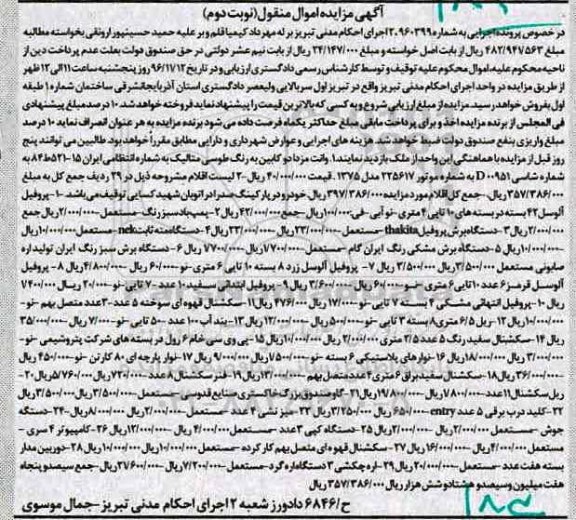 آگهی مزایده اموال منقول (نوبت دوم)
در خصوص پرونده اجرایی به شماره ۲۰۹۶۰۳۹۹ اجرای احکام مدنی تبریز بر له مهرداد کیمیا قلم و بر علیه حمید حسینپور ارونقی بخواسته مطالبه
مبلغ ۴۸۲/۹۴۷/۵۶۳ ریال از بابت اصل خواسته و مبلغ ۲۴/۱۴۷/۰۰۰ ریال از بابت نیم عشر دولتی در حق صندوق دولت بعلت عدم پرداخت دین از
ناحیه محکوم علیه، اموال محکوم علیه توقیف و توسط کارشناس رسمی دادگستری ارزیابی و در تاریخ ۹۶/۱۱/۱۲ روز پنجشنبه ساعت ۱۱ الی ۱۲ ظهر
از طریق مزایده در واحد اجرای احکام مدنی تبریز واقع در تبریز اول سربالایی ولیعصر دادگستری استان آذربایجانشرقی ساختمان شماره ۱ طبقه
اول بفروش خواهد رسید. مزایده از مبلغ ارزیابی شروع و به کسی که بالاترین قیمت را پیشنهاد نماید فروخته خواهد شد. ۱۰ درصد مبلغ پیشنهادی
فی المجلس از برنده مزایده اخذ و برای پرداخت مابقی مبلغ حداکثر یکماه فرصت داده می شود برنده مزایده به هر عنوان انصراف نماید ۱۰ درصد
مبلغ واریزی بنفع صندوق دولت ضبط خواهد شد. هزینه های اجرایی و عوارض شهرداری و دارایی مطابق مقررات خواهد بود. طالبین می توانند پنج
روز قبل از مزایده با هماهنگی این واحد از ملک بازدید نمایند. ۱. وانت مزدا دو کابین به رنگ طوسی متالیک به شماره انتظامی ایران ۱۵-
شماره شاسی D۰۰۹۵۱ به شماره موتور ۲۲۵۶۱۷ مدل ۱۳۷۵. قیمت ۴۰/۰۰۰/۰۰۰ ریال ۲- لیست اقلام مشروحه ذیل در ۲۹ ردیف جمع کل به مبلغ
۳۵۷/۳۸۶/۰۰۰ ریال- جمع کل اقلام مورد مزایده ۳۹۷/۳۸۶/۰۰۰ ریال خودرو در پارکینگ صدرا در اتوبان شهید کسایی توقیف می باشد. ۱- پروفیل
آلوسل ۴۲ بسته در بسته های ۱۰ تایی ۶ متری- نو آبی- فی ۱۰۰/۰۰۰ ریال- جمع ۴۲/۰۰۰/۰۰۰ ریال ۲- پمپ باد سبز رنگ- مستعمل- ۲/۰۰۰/۰۰۰ ریال جمع
۲/۰۰۰/۰۰۰ ریال ۳- دستگاه برش پروفیل thakita- مستعمل- ۲۳/۰۰۰/۰۰۰ ریال- ۲۳/۰۰۰/۰۰۰ ریال ۴- دستگاه مته ثابت nek- مستعمل ۱۰/۰۰۰/۰۰۰ ریال
-۱۰/۰۰۰/۰۰۰ ریال ۵- دستگاه برش مشکی رنگ ایران گام- مستعمل- ۷۷۰۰/۰۰۰ ریال- ۷۷۰۰/۰۰۰ ریال ۶- دستگاه برش سبز رنگ ایران تولیداره
صابونی مستعمل ۳/۵۰۰/۰۰۰ ریال ۳/۵۰۰/۰۰۰ ریال ۷- پروفیل آلوسل زرد ۸ بسته ۱۰ تایی ۶ متری- نو- ۶۰/۰۰۰ ریال- ۴/۸۰۰/۰۰۰ ریال ۸- پروفیل
آلوسل قرمز ۶ عدد ۱۰ تایی ۶ متری- نو- ۶۰/۰۰۰ ریال- ۳/۶۰۰/۰۰۰ ریال ۹- پروفیل ابتدائی سفید- ۱۰ عدد- ۷ تایی- نو- ۲۰/۰۰۰ ریال ۷۴۰۰/۰۰۰
ریال ۱۰- پروفیل انتهائی مشکی ۴ بسته ۷ تایی- نو- ۱۷/۰۰۰ ریال ۴۷۶/۰۰۰ ریال ۱۱- سکشنال قهوه ای سوخته ۵ عدد- ۳ عدد متصل بهم- نو-
۱۰/۰۰۰/۰۰۰ ریال ۱۲- ریل ۶/۵ متری ۸ بسته ۳ تایی- نو- ۵۰۰/۰۰۰ ریال- ۱۲/۰۰۰/۰۰۰ ریال ۱۳- بند آب ۱۰۰ عدد- ۵۰ تایی- نو- ۷/۰۰۰ ریال- ۳۵/۰۰۰/۰۰۰
ریال ۱۴- سکشنال سفید رنگ ۵ عدد ۲/۵ متری ۲/۰۰۰/۰۰۰ ریال ۱۰/۰۰۰/۰۰۰ ریال ۱۵- پی وی سی خام ۶ رول در بسته های شرکت پتروشیمی- نو-
۳/۰۰۰/۰۰۰ ریال ۱۸/۰۰۰/۰۰۰ ریال ۱۶- نوارهای پلاستیکی ۶ بسته- نو- ۱/۵۰۰/۰۰۰ ریال ۹/۰۰۰/۰۰۰ ریال ۱۷- نوار پارچه ای ۸۰ کارتن- نو- ۴۵۰/۰۰۰ ریال
-۳۶/۰۰۰/۰۰۰ ریال ۱۸- سکشنال سفید براق ۶ متری ۴ عدد متصل بهم- ۱۳/۰۰۰/۰۰۰ ریال ۱۹- فنر سکشنال ۸ عدد- ۷۲۰/۰۰۰ ریال ۵/۷۶۰/۰۰۰ ریال ۲۰-
ریل سکشنال ۱۱ عدد- ۱/۸۰۰/۰۰۰ ریال- ۱۹/۸۰۰/۰۰۰ ریال ۲۱- گاوصندوق بزرگ خاکستری صنایع قدوسی- مستعمل- ۳/۵۰۰/۰۰۰ ریال ۳/۵۰۰/۰۰۰ ریال
۲۲- کلید درب برقی ۵ عدد entry- ۶۵۰/۰۰۰ ریال ۳/۲۵۰/۰۰۰ ریال ۲۳- میز نشی ۴ عدد- مستعمل- ۲/۰۰۰/۰۰۰ ریال ۸/۰۰۰/۰۰۰ ریال- ۲۴- دستگاه
جوش- مستعمل- ۲/۰۰۰/۰۰۰ ریال- ۲/۰۰۰/۰۰۰ ریال ۲۵- دستگاه کپی ۳ عدد- مستعمل- ۴/۰۰۰/۰۰۰ ریال- ۱۲/۰۰۰/۰۰۰ ریال ۲۶- کامپیوتر ۴ سری-
مستعمل ۴/۰۰۰/۰۰۰ ریال ۱۶/۰۰۰/۰۰۰ ریال ۲۷- سکشنال قهوه ای متصل بهم کار کرده- مستعمل- ۱۰/۰۰۰/۰۰۰ ریال ۱۰/۰۰۰/۰۰۰ ریال ۲۸- دوربین مدار
بسته هفت عدد- مستعمل- ۲۰/۰۰۰/۰۰۰ ریال ۲۹- اره چکشی ۳ دستگاه اره گرد- مستعمل- ۷/۲۰۰/۰۰۰ ریال ۲۱/۶۰۰/۰۰۰ ریال- جمع سیصد و پنجاه
هفت میلیون و سیصد و هشتاد و شش هزار ریال ۳۵۷/۳۸۶/۰۰۰ ریال
ح/۶۸۴۶ دادورز شعبه ۲ اجرای احکام مدنی تبریز- جمال موسوی